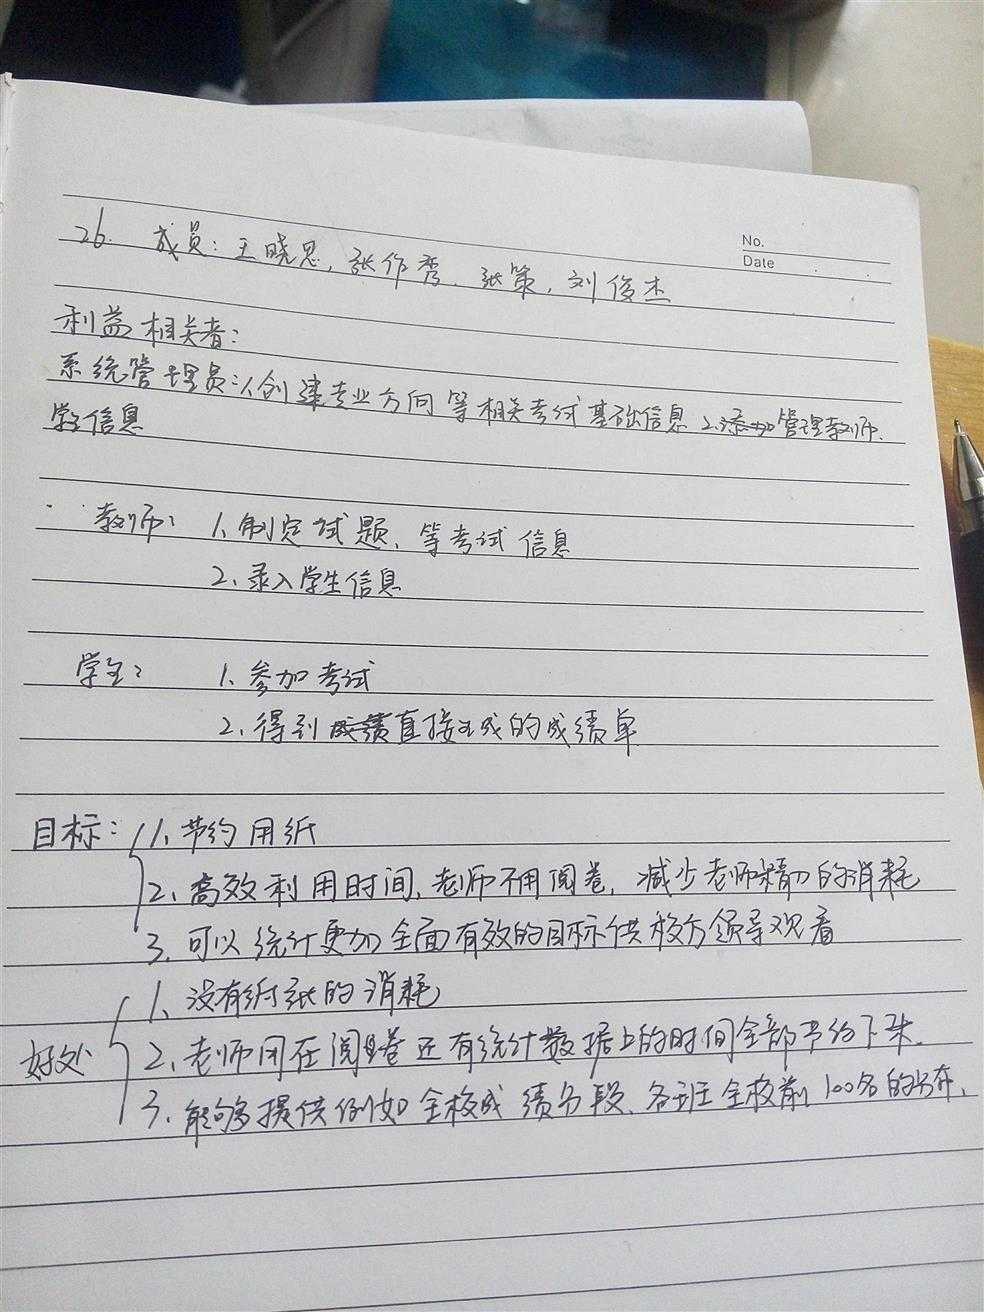 No.
Date
26. 成员：王晓思，张作秀、张策，刘俊杰
利益相关者：
系统管理员：1.创建专业方向等相关考试基础信息 2.添加管理教师.
学生信息
教师： 1、制定试题、等考试信息
2、录入学生信息
学生： 1、参加考试
2、得到成绩直接生成的成绩单
目标： 1、节约用纸
2、高效利用时间，老师不用阅卷，减少老师精力的消耗
3、可以统计更加全面有效的目标供校方领导观看
1、没有纸张的消耗
好处 2、老师用在阅卷还有统计数据上的时间全部节约下来.
3、能够提供例如全校成绩分段、各班全校前100名的分布、